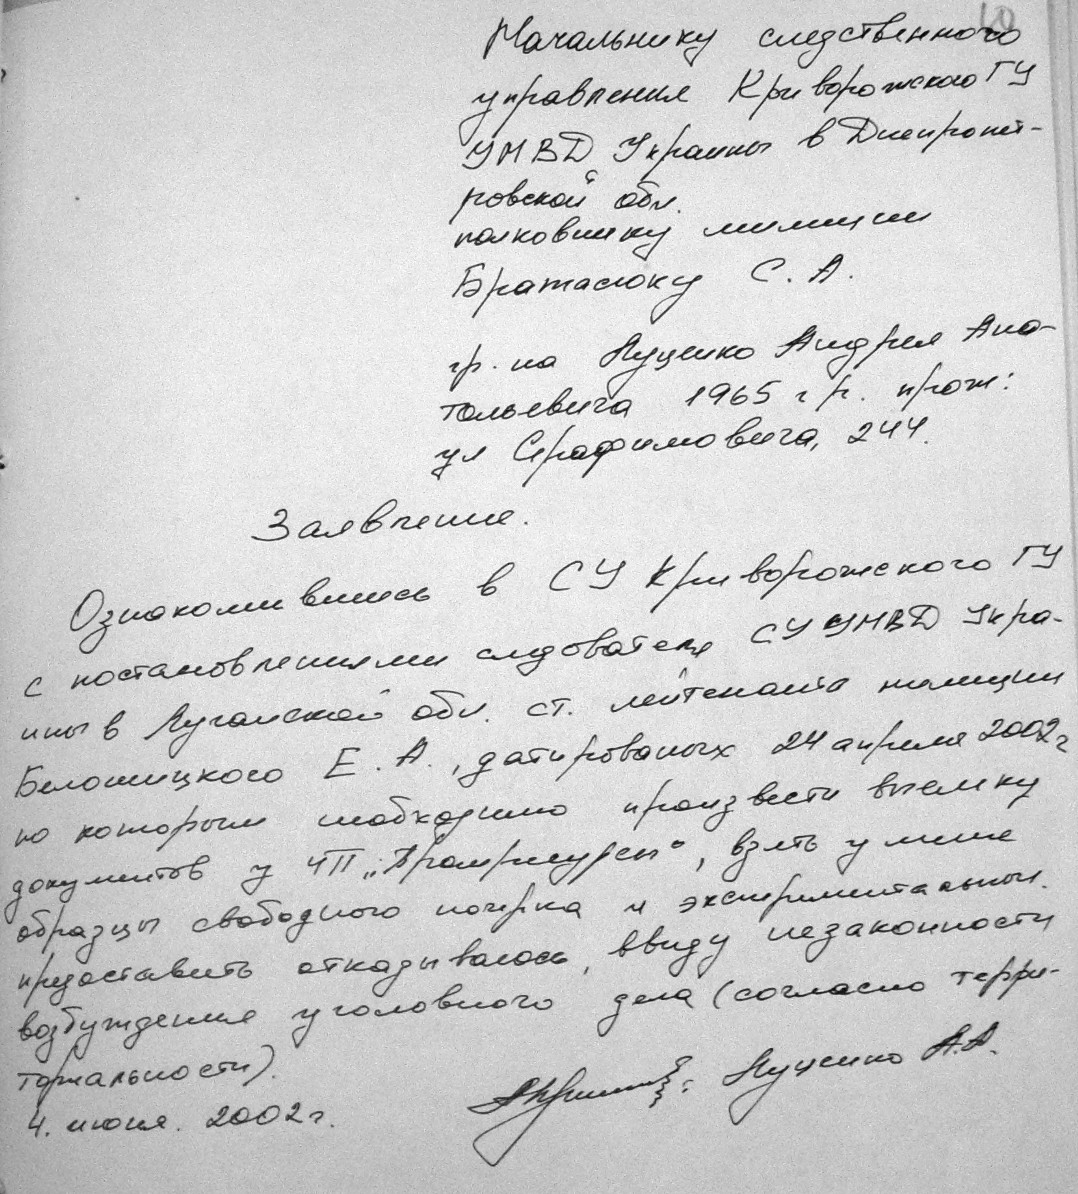 10
Начальнику следственного
управления Криворожского ГУ
УМВД Украины в Днепропет-
ровской обл.
полковнику милиции
Братасюку С. А.
гр. на Луценко Андрея Ана-
тольевича 1965 г.р. прож:
ул Серафимовича, 244.
Заявление.
Ознакомившись в СУ Криворожского ГУ
с постановлениями следователя СУ УМВД Укра-
ины в Луганской обл. ст. лейтенанта милиции
Белошицкого Е. А., датированых 24 апреля 2002г
по которым необходимо произвести выемку
документов у ЧП „Промресурсы", взять у меня
образцы свободного почерка и экспериментальные.
предоставить отказываюсь, ввиду незаконности
возбуждения уголовного дела (согласно терри-
ториальности).
4. июня. 2002г. Луценко А.А.